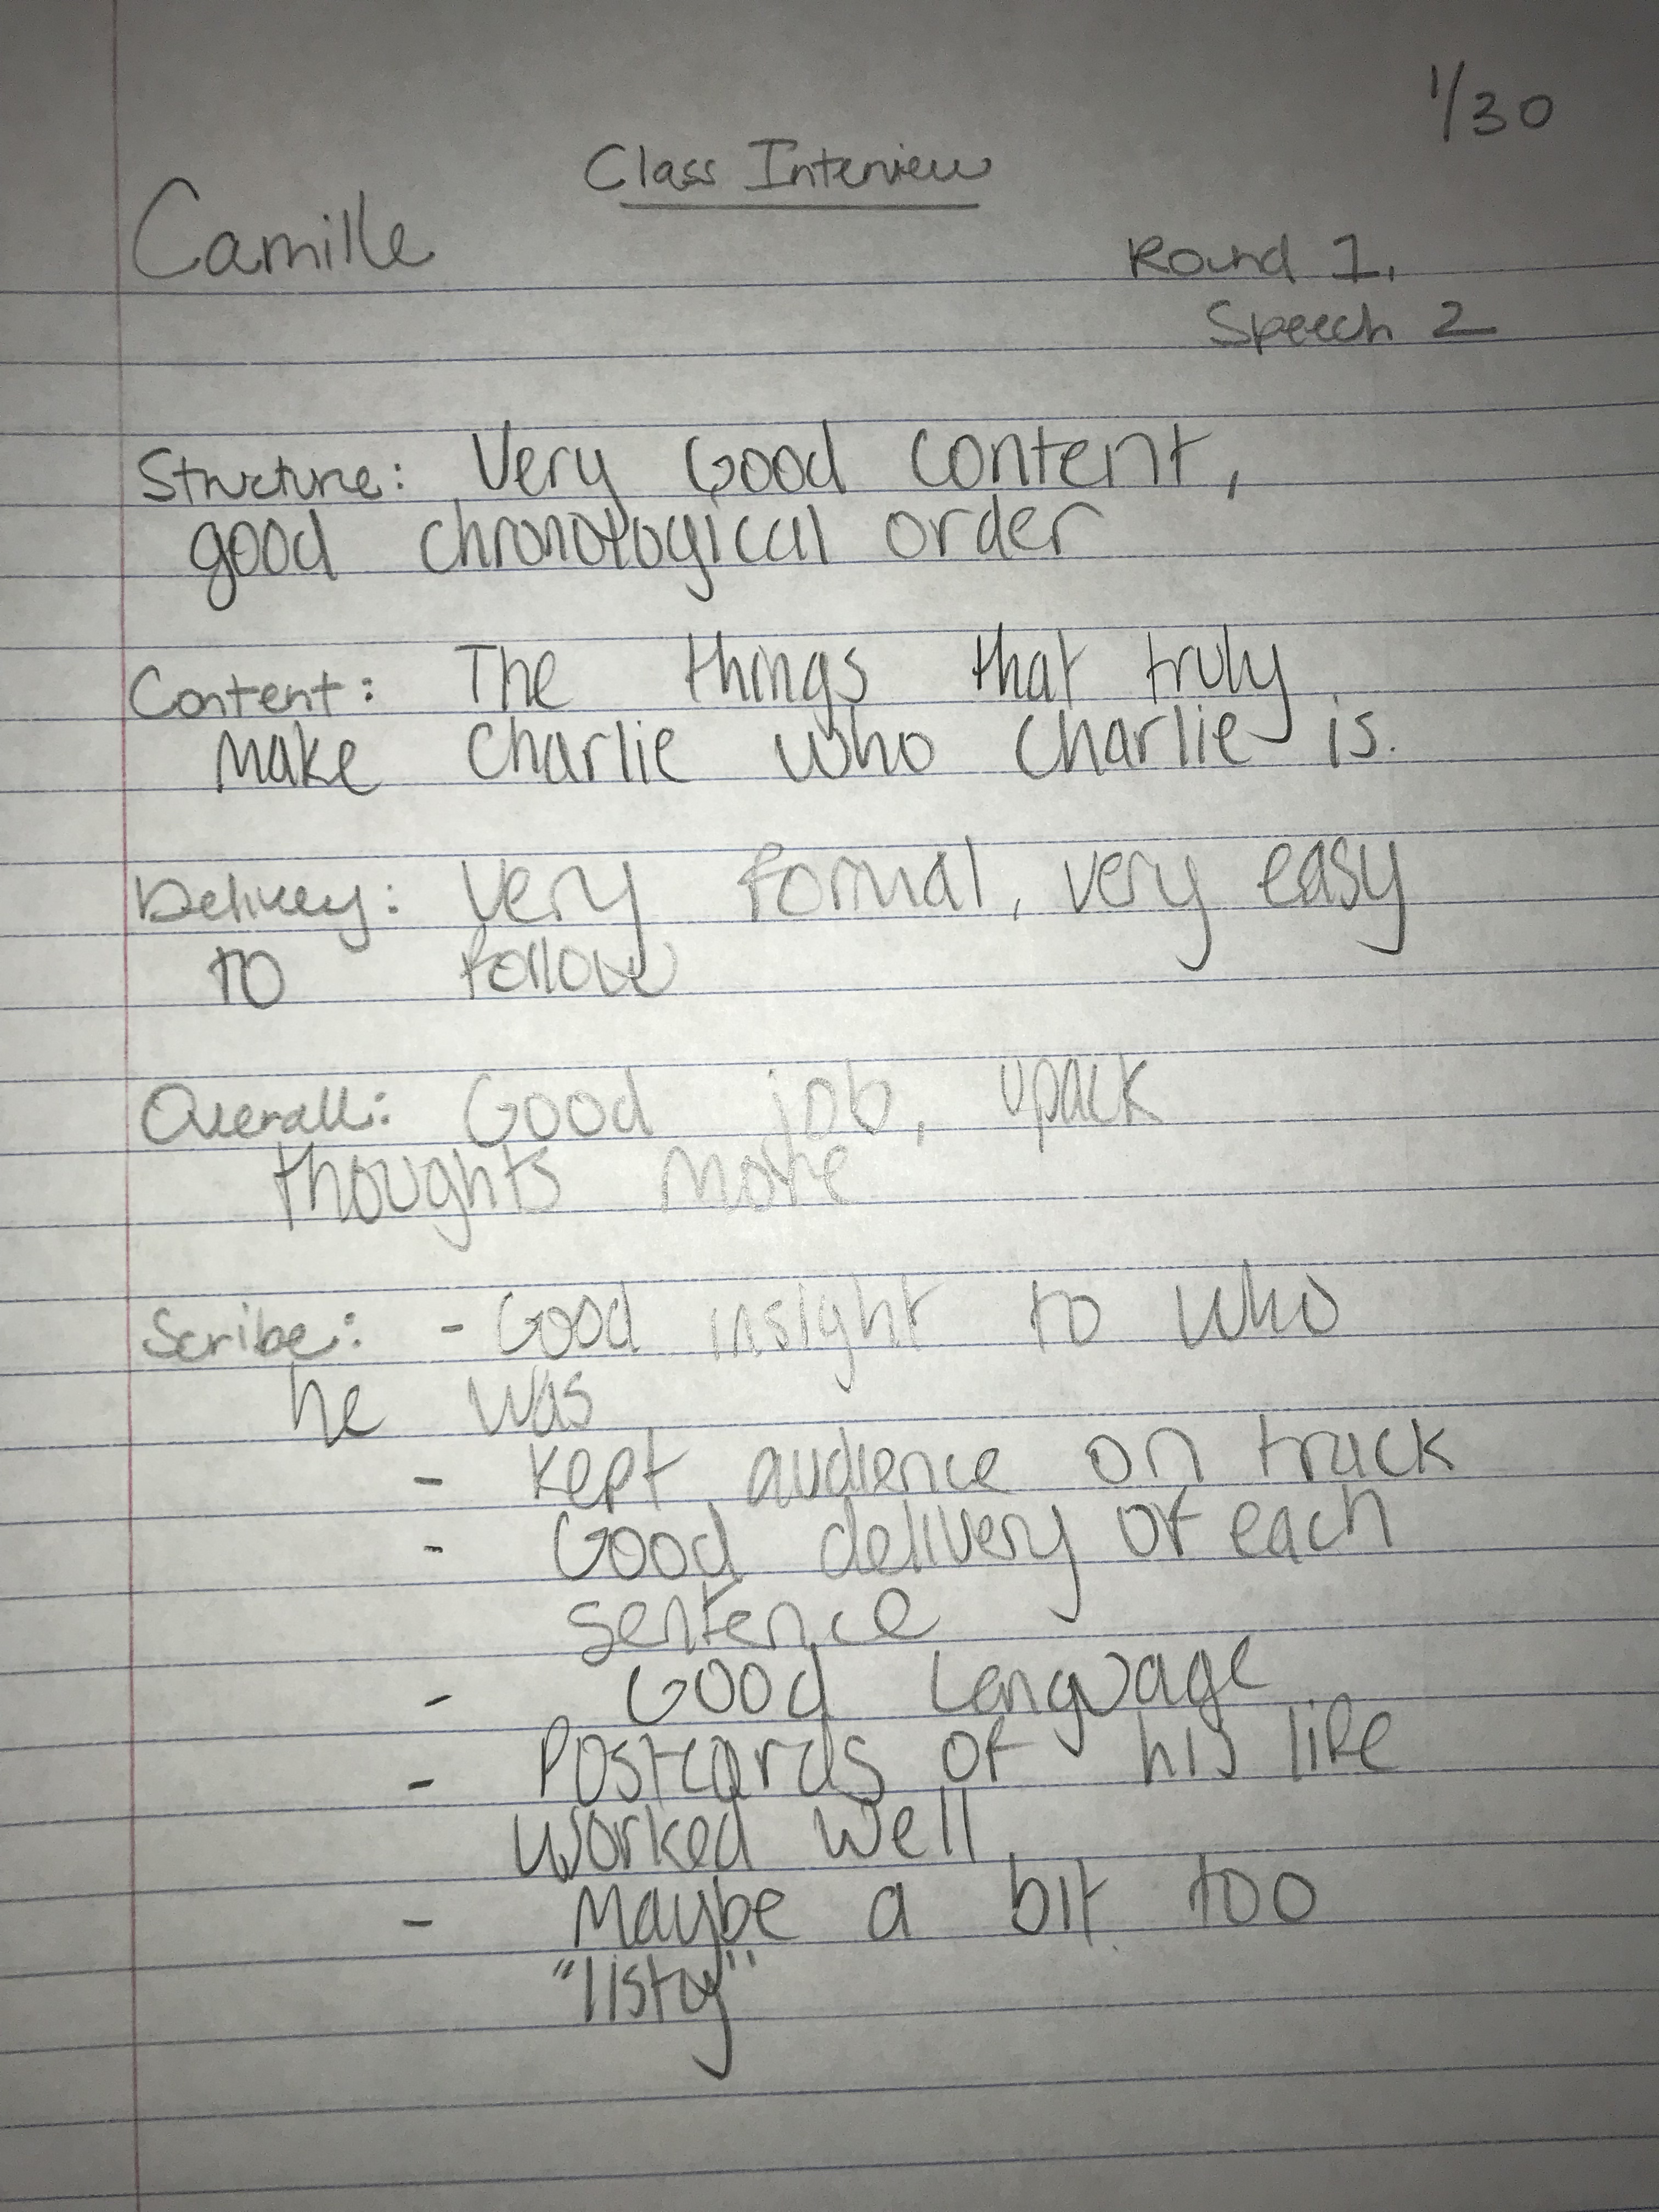 1/30
Class Interview
Camille
Round 1,
Speech 2
Structure: Very Good content,
good chronological order
Content: The things that truly
make Charlie who Charlie is.
Delivery: Very formal, very easy
to follow
Overall: Good job, upack
thoughts more
Scribe: - Good insight to who
he was
- kept audience on track
- Good delivery of each
sentence
- Good Language
- Postcards of his life
worked well
- Maybe a bit too
"listy"